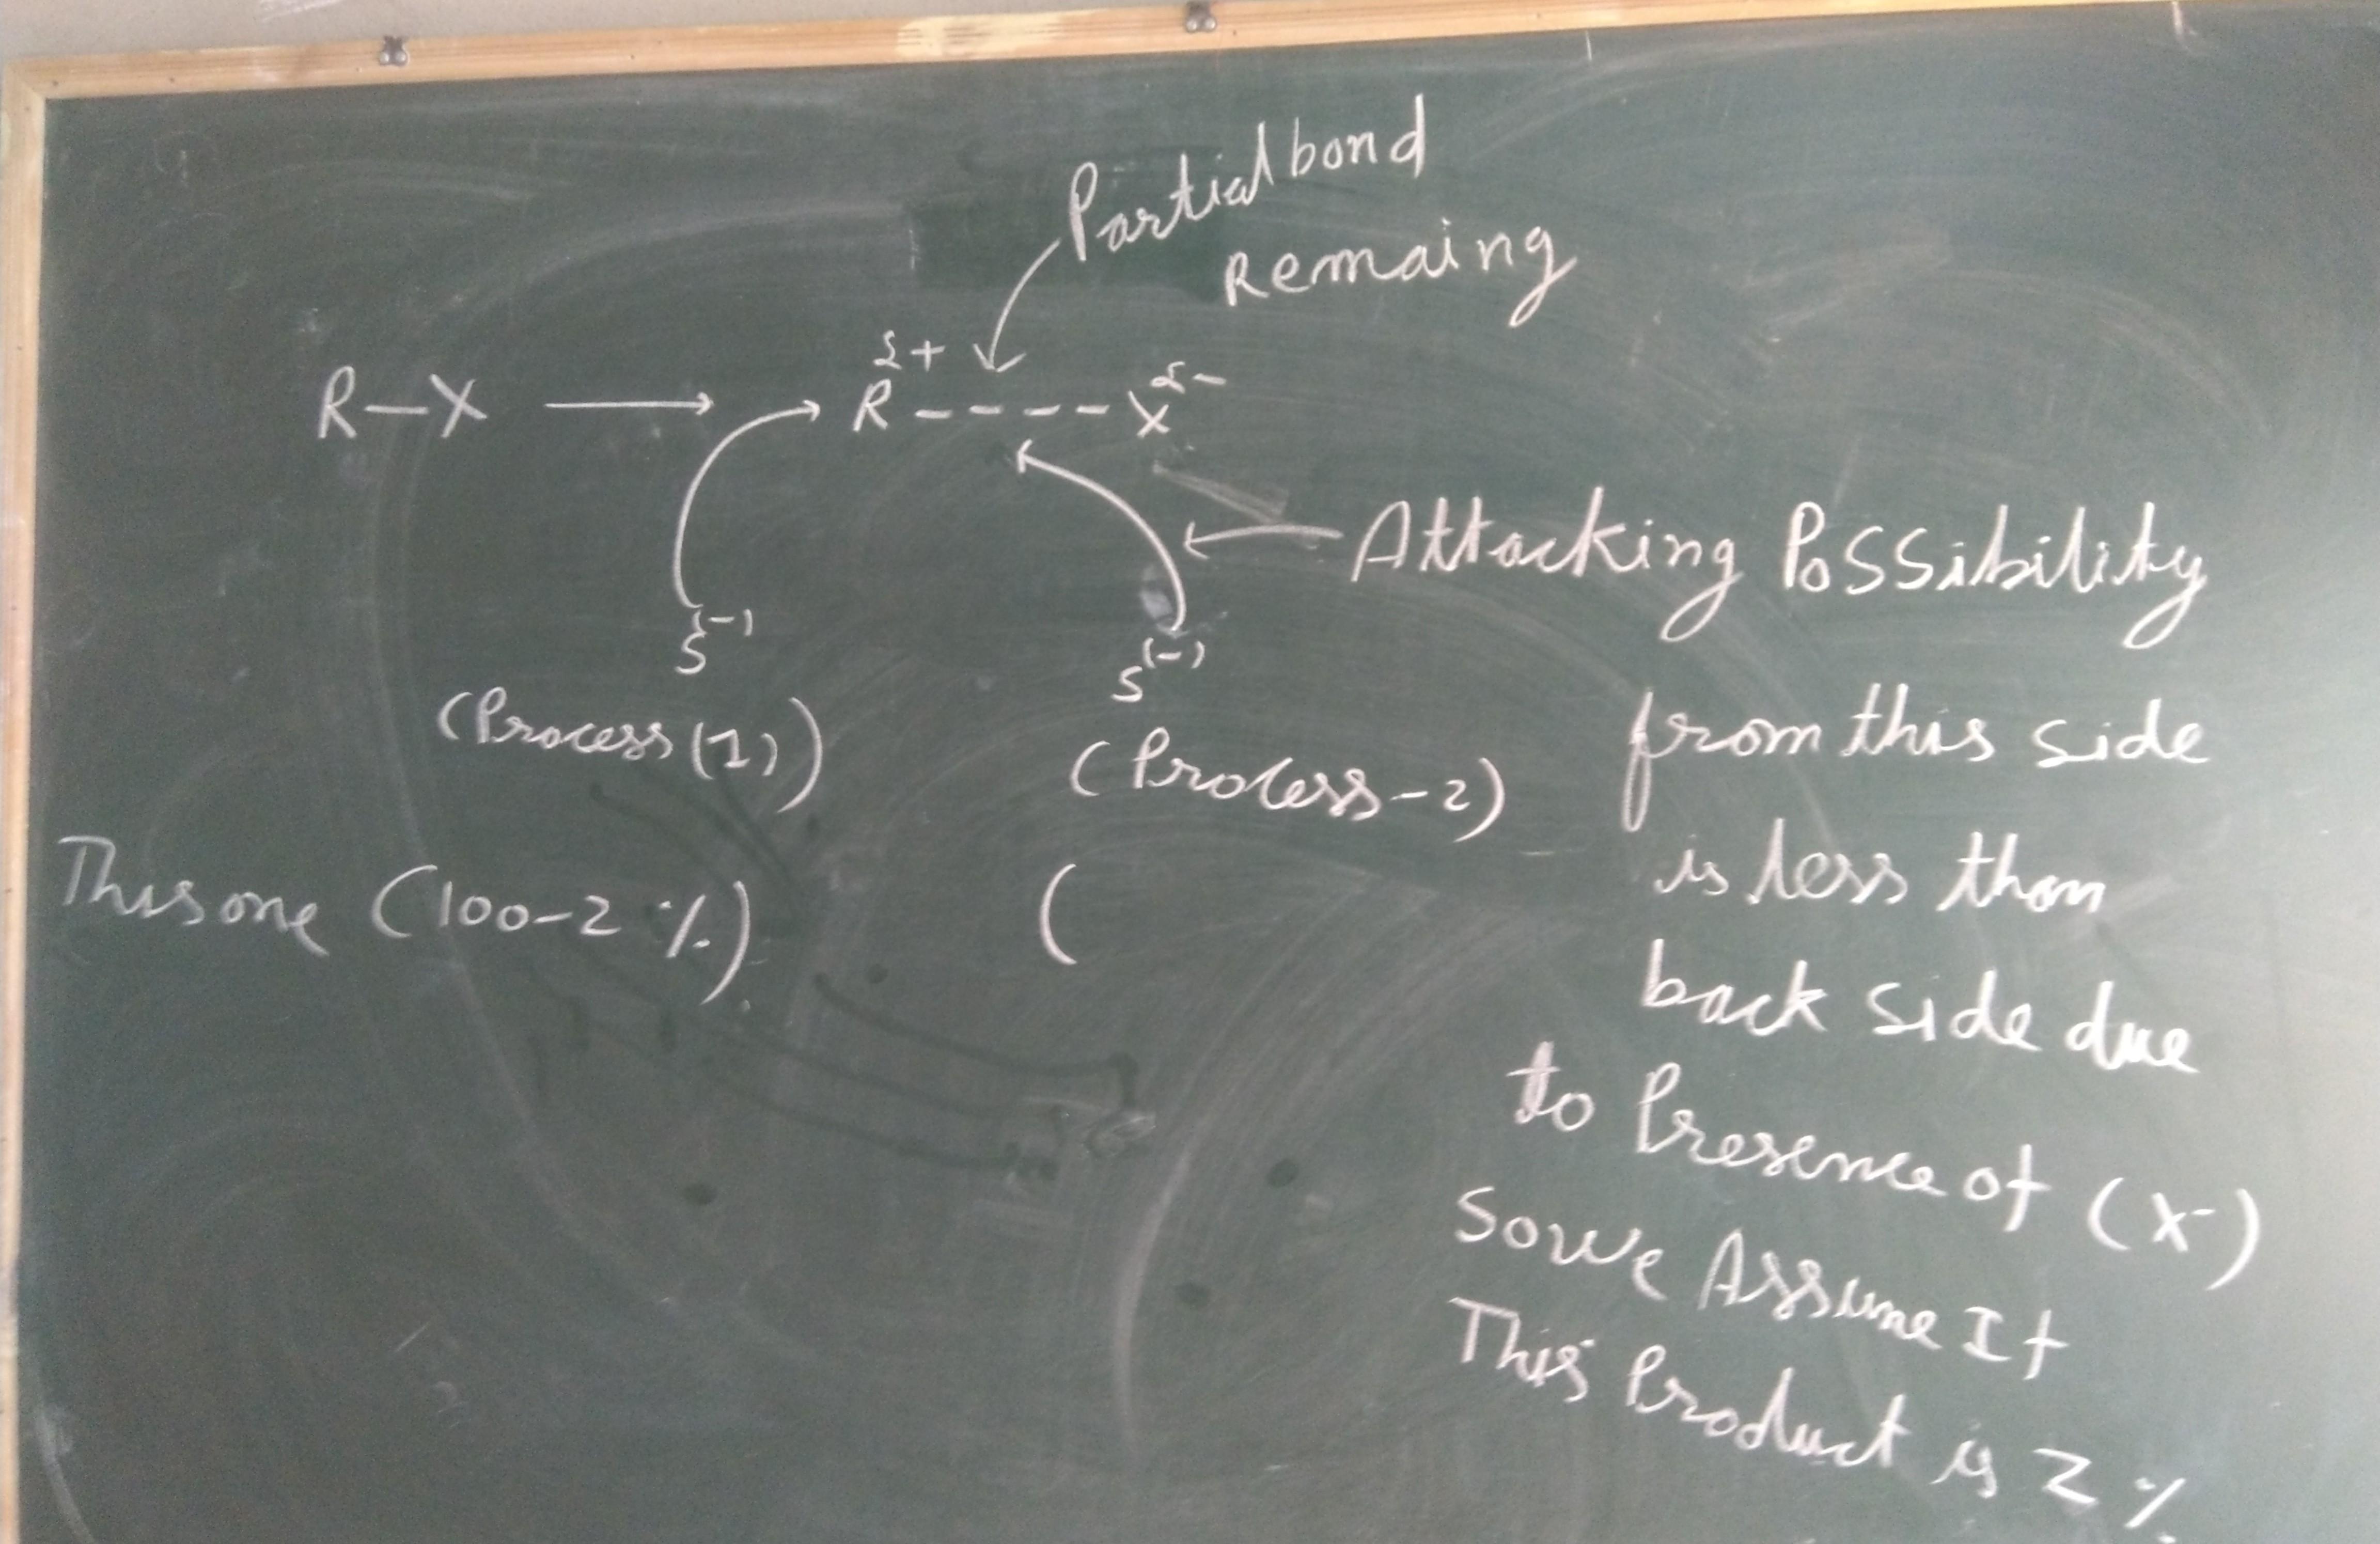 Partial bond
Remaing
R-X → R δ+ ---- X δ-
S(-) S(-)
(Process (1)) (Process-2)
This one (100-2 %) (
Attacking Possibility
from this side
is less than
back side due
to Presence of (X-)
So we Assume It
This Product is 2 %